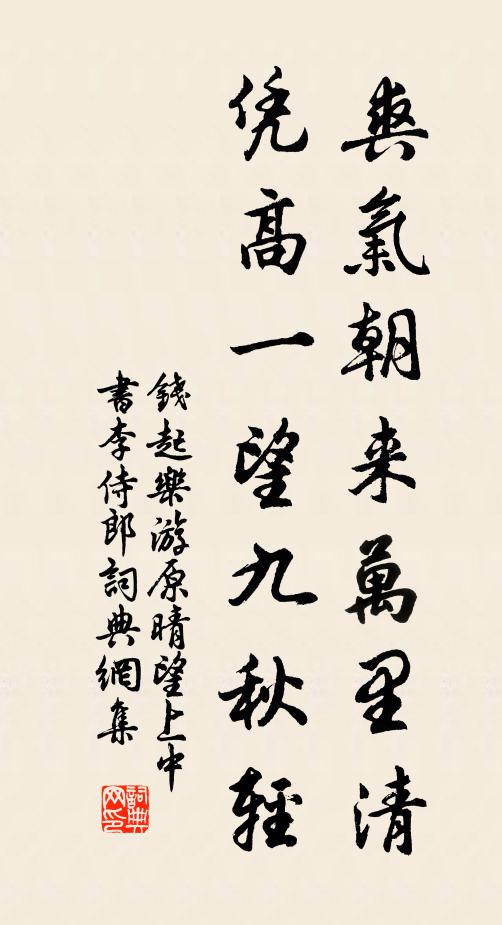 爽氣朝来萬里清
凭高一望九秋輕
錢起樂游原晴望上中
書李侍郎詞典網集
詞典
网印